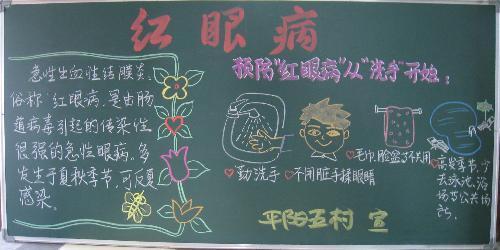 红眼病
急性出血性结膜炎,
俗称"红眼病,是由肠
道病毒引起的传染性
很强的急性眼病。多
发生于夏秋季节,可反复
感染。
预防"红眼病"从"洗手"开始:
勤洗手
不用脏手揉眼睛
毛巾、脸盆等不共用
高发季节,少
去泳池、浴
场等公共场
所。
平阳五村 宣